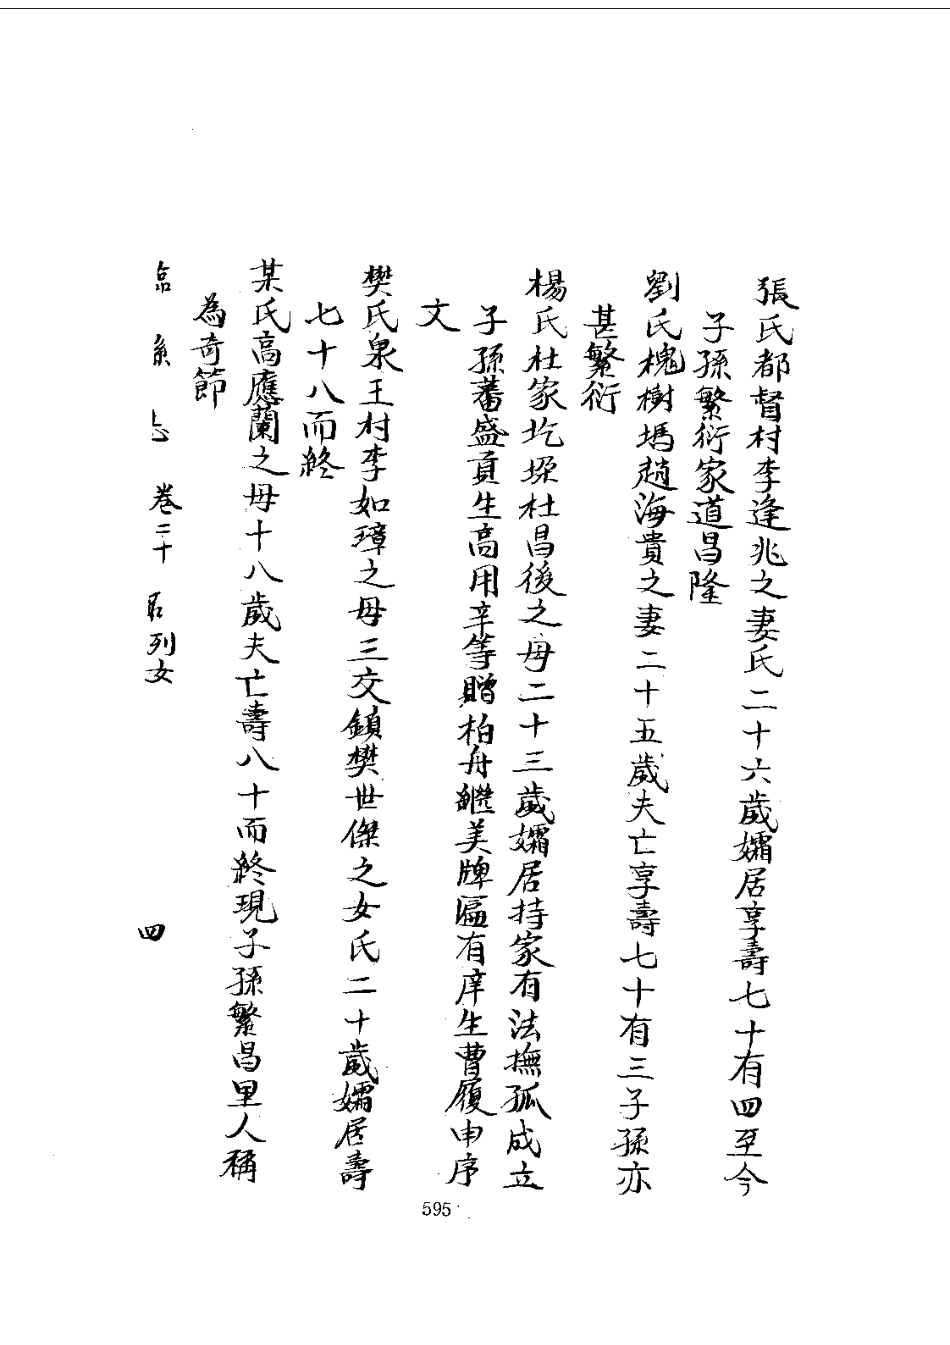 張氏都督村李逢兆之妻氏二十六歲孀居享壽七十有四至今
子孫繁衍家道昌隆
劉氏槐樹塢趙海貴之妻二十五歲夫亡享壽七十有三子孫亦
甚繁衍
楊氏杜家圪垛杜昌後之母二十三歲孀居持家有法撫孤成立
子孫蕃盛貢生高用辛等贈柏舟繼美牌匾有庠生曹履申序
文
樊氏泉王村李如璋之母三交鎮樊世傑之女氏二十歲孀居壽
七十八而終
某氏高應蘭之母十八歲夫亡壽八十而終現子孫繁昌里人稱
為奇節
卷二十 列女 四
595